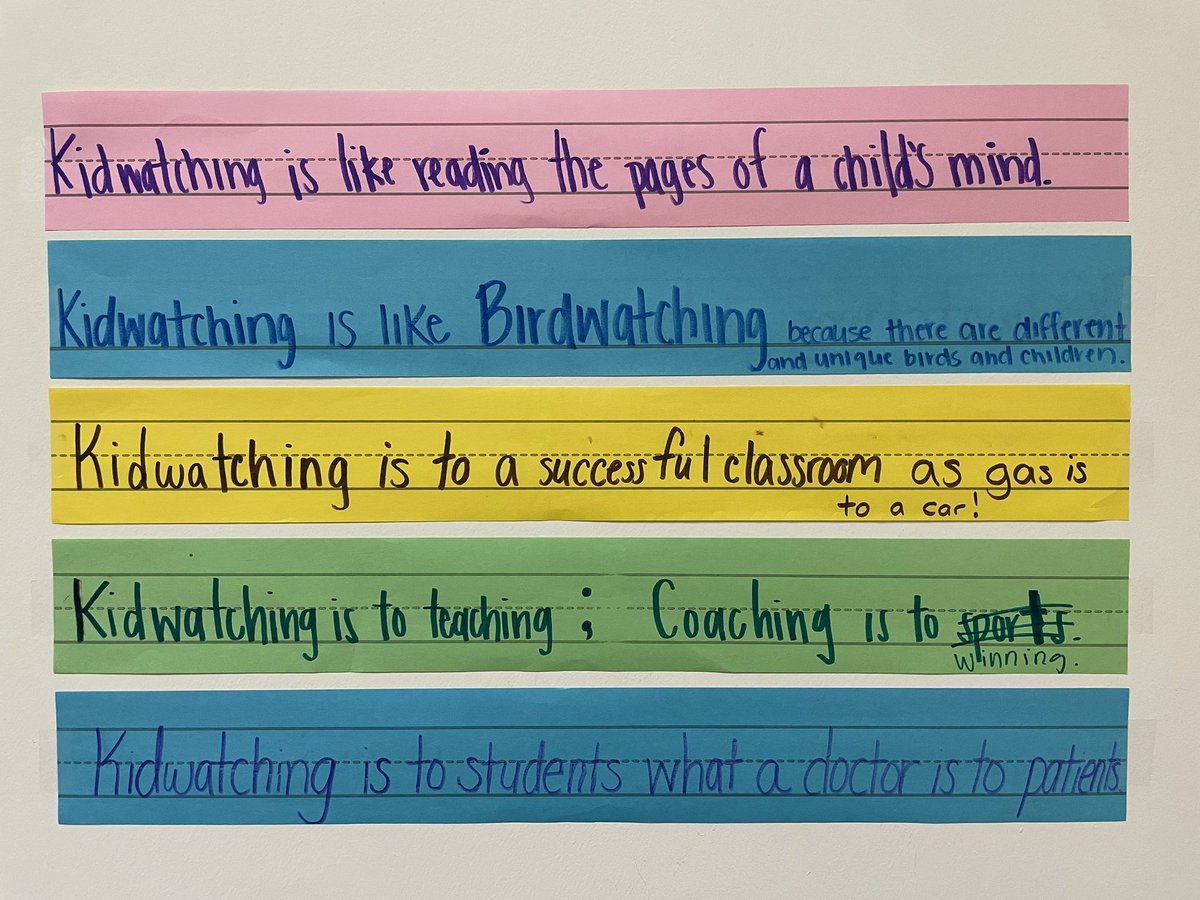 Kidwatching is like reading the pages of a child's mind.
Kidwatching is like Birdwatching because there are different
and unique birds and children.
Kidwatching is to a successful classroom as gas is
to a car!
Kidwatching is to teaching ; Coaching is to sports.
winning.
Kidwatching is to students what a doctor is to patients.